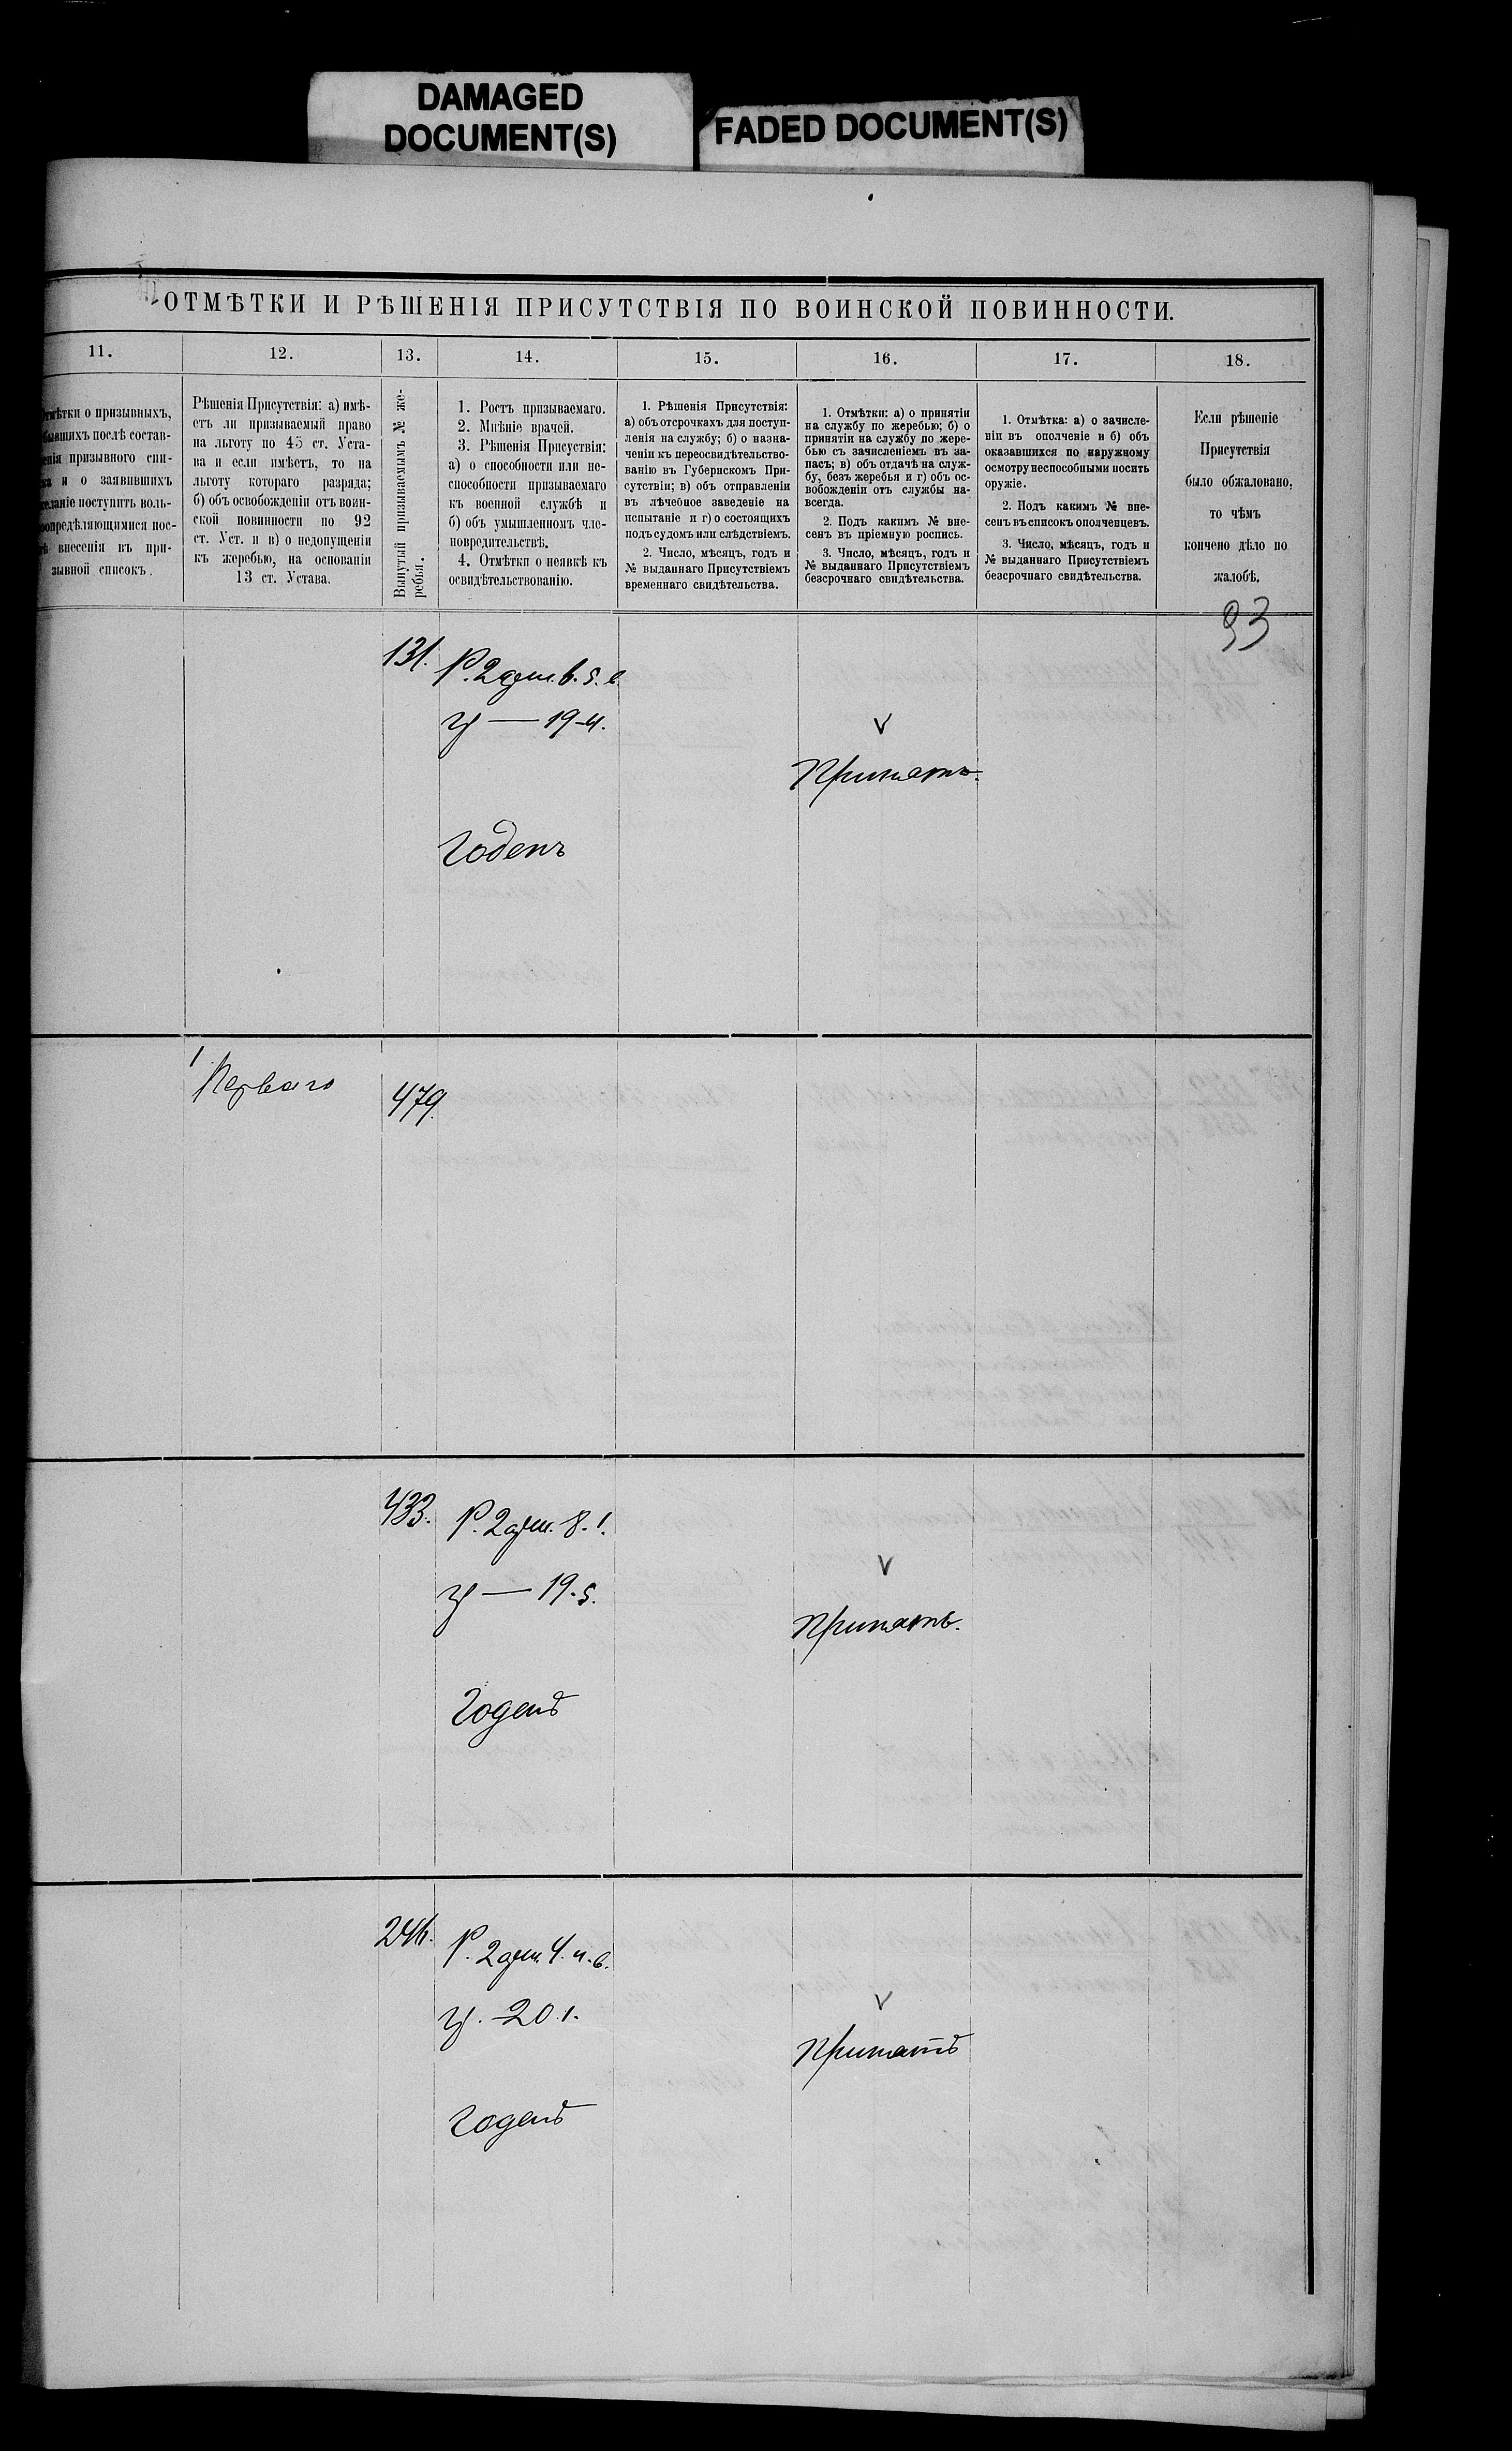 DAMAGED
DOCUMENT(S)
FADED DOCUMENT(S)
ОТМѢТКИ И РѢШЕНІЯ ПРИСУТСТВІЯ ПО ВОИНСКОЙ ПОВИННОСТИ.
11.
12.
13.
14.
15.
16.
17.
18.
о призывныхъ,
послѣ состав-
призывного спи-
и о заявившихъ
поступить воль-
внесенія въ при-
зывной списокъ.
Рѣшенія Присутствія: а) имѣ-
етъ ли призываемый право
на льготу по 45 ст. Уста-
ва и если имѣетъ, то на
льготу котораго разряда;
б) объ освобожденіи отъ воин-
ской повинности по 92
ст. Уст. и в) о недопущеніи
къ жеребью, на основаніи
13 ст. Устава.
Вынутый призываемымъ № же-
ребья.
1. Ростъ призываемаго.
2. Мнѣніе врачей.
3. Рѣшенія Присуствія:
а) о способности или не-
способности призываемаго
къ военной службѣ и
б) объ умышленномъ чле-
новредительствѣ.
4. Отмѣтки о неявкѣ къ
освидѣтельствованію.
1. Рѣшенія Присутствія:
а) объ отсрочкахъ для поступ-
ленія на службу; б) о назна-
ченіи къ переосвидѣтельство-
ванію въ Губернскомъ При-
сутствіи; в) объ отправленіи
въ лѣчебное заведеніе на
испытаніе и г) о состоящихъ
подъ судомъ или слѣдствіемъ.
2. Число, мѣсяцъ, годъ и
№ выданнаго Присутствіемъ
временнаго свидѣтельства.
1. Отмѣтки: а) о принятіи
на службу по жеребью; б) о
принятіи на службу по жере-
бью съ зачисленіемъ въ за-
пасъ; в) объ отдачѣ на служ-
бу, безъ жеребья и г) объ ос-
вобожденіи отъ службы на-
всегда.
2. Подъ какимъ № вне-
сенъ въ пріемную роспись.
3. Число, мѣсяцъ, годъ и
№ выданнаго Присутствіемъ
безсрочнаго свидѣтельства.
1. Отмѣтка: а) о зачисле-
ніи въ ополченіе и б) объ
оказавшихся по наружному
осмотру неспособными носить
оружіе.
2. Подъ какимъ № вне-
сенъ въ списокъ ополченцевъ.
3. Число, мѣсяцъ, годъ и
№ выданнаго Присутствіемъ
безсрочнаго свидѣтельства.
Если рѣшеніе
Присутствія
было обжаловано,
то чѣмъ
кончено дѣло по
жалобѣ.
93
131.
Р. 2 арш. 6. 5. в
гр — 19-4.
Принятъ.
Годенъ
Перваго
479.
433.
Р. 2 арш. 8. 1.
гр — 19. 5.
Принятъ.
Годенъ
246.
Р. 2 арш. 4. ч. в.
гр. - 20. 1.
Принятъ
Годенъ